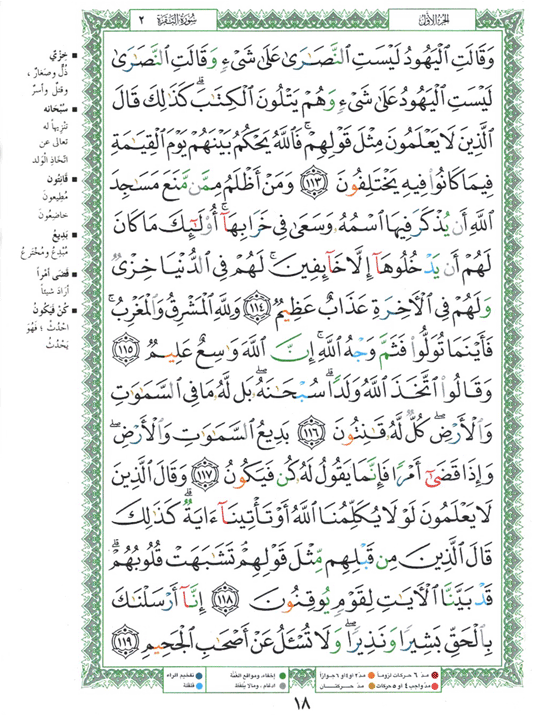 الجزء الأول
سورة البقرة ٢
وَقَالَتِ ٱلْيَهُودُ لَيْسَتِ ٱلنَّصَـٰرَىٰ عَلَىٰ شَىْءٍ وَقَالَتِ ٱلنَّصَـٰرَىٰ
لَيْسَتِ ٱلْيَهُودُ عَلَىٰ شَىْءٍ وَهُمْ يَتْلُونَ ٱلْكِتَـٰبَ ۗ كَذَٰلِكَ قَالَ
ٱلَّذِينَ لَا يَعْلَمُونَ مِثْلَ قَوْلِهِمْ ۚ فَٱللَّهُ يَحْكُمُ بَيْنَهُمْ يَوْمَ ٱلْقِيَـٰمَةِ
فِيمَا كَانُوا۟ فِيهِ يَخْتَلِفُونَ ١١٣ وَمَنْ أَظْلَمُ مِمَّن مَّنَعَ مَسَـٰجِدَ
ٱللَّهِ أَن يُذْكَرَ فِيهَا ٱسْمُهُۥ وَسَعَىٰ فِى خَرَابِهَآ ۚ أُو۟لَـٰٓئِكَ مَا كَانَ
لَهُمْ أَن يَدْخُلُوهَآ إِلَّا خَآئِفِينَ ۚ لَهُمْ فِى ٱلدُّنْيَا خِزْىٌ
وَلَهُمْ فِى ٱلْـَٔاخِرَةِ عَذَابٌ عَظِيمٌ ١١٤ وَلِلَّهِ ٱلْمَشْرِقُ وَٱلْمَغْرِبُ ۚ
فَأَيْنَمَا تُوَلُّوا۟ فَثَمَّ وَجْهُ ٱللَّهِ ۚ إِنَّ ٱللَّهَ وَٰسِعٌ عَلِيمٌ ١١٥
وَقَالُوا۟ ٱتَّخَذَ ٱللَّهُ وَلَدًا ۗ سُبْحَـٰنَهُۥ ۖ بَل لَّهُۥ مَا فِى ٱلسَّمَـٰوَٰتِ
وَٱلْأَرْضِ ۖ كُلٌّ لَّهُۥ قَـٰنِتُونَ ١١٦ بَدِيعُ ٱلسَّمَـٰوَٰتِ وَٱلْأَرْضِ ۖ
وَإِذَا قَضَىٰٓ أَمْرًا فَإِنَّمَا يَقُولُ لَهُۥ كُن فَيَكُونُ ١١٧ وَقَالَ ٱلَّذِينَ
لَا يَعْلَمُونَ لَوْلَا يُكَلِّمُنَا ٱللَّهُ أَوْ تَأْتِينَآ ءَايَةٌ ۗ كَذَٰلِكَ
قَالَ ٱلَّذِينَ مِن قَبْلِهِم مِّثْلَ قَوْلِهِمْ ۘ تَشَـٰبَهَتْ قُلُوبُهُمْ ۗ
قَدْ بَيَّنَّا ٱلْـَٔايَـٰتِ لِقَوْمٍ يُوقِنُونَ ١١٨ إِنَّآ أَرْسَلْنَـٰكَ
بِٱلْحَقِّ بَشِيرًا وَنَذِيرًا ۖ وَلَا تُسْـَٔلُ عَنْ أَصْحَـٰبِ ٱلْجَحِيمِ ١١٩
■ خِزْيٌ
ذُلٌّ وصَغَارٌ ،
وقتلٌ وأسرٌ
■ سُبْحَانه
تنْزِيهاً له
تعالى عن
اتّخاذِ الوَلَدِ
■ قَانِتُونَ
مُطِيعونَ
خاضِعُونَ
■ بَدِيعُ
مُبْدِعُ ومُخْتَرِعُ
■ قَضى أمْراً
أرَادَ شيئاً
■ كُنْ فَيَكُونُ
احْدُثْ ؛ فَهُوَ
يَحْدُثُ
مدّ ٦ حركات لزوماً
مدّ ٢ أو ٤ أو ٦ جوازاً
مدّ واجب ٤ أو ٥ حركات
مدّ حركتان
إخفاء، ومواقع الغنّة
ادغام، وما لا يلفظ
تفخيم الراء
قلقلة
١٨